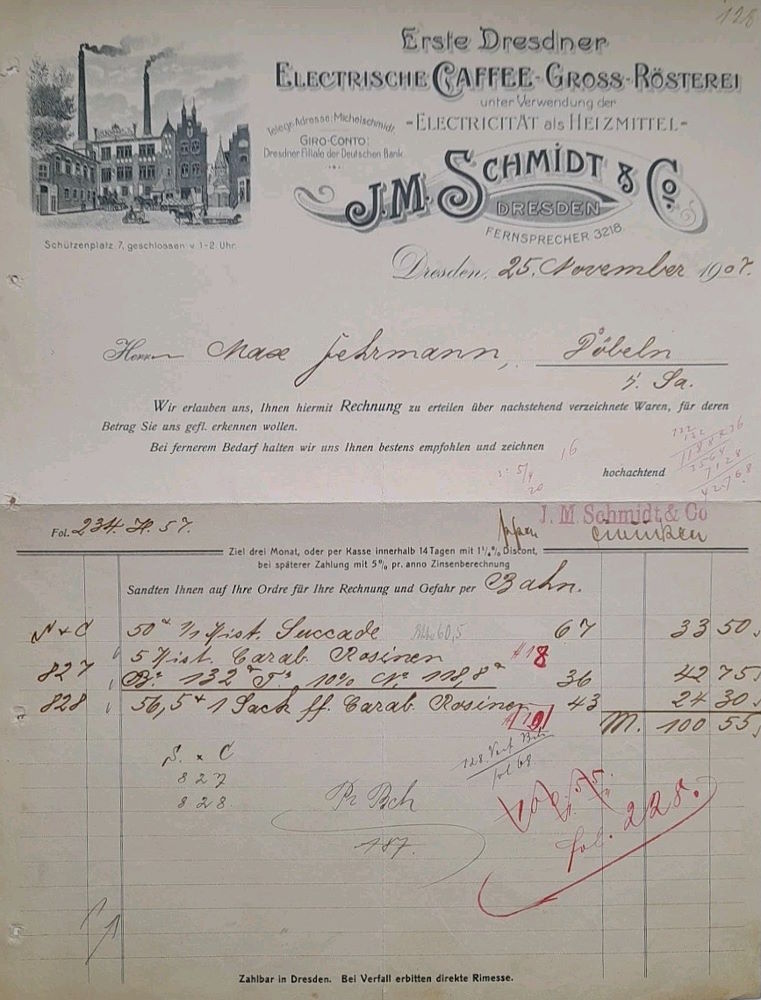 128
Erste Dresdner
ELECTRISCHE CAFFEE-GROSS-RÖSTEREI
unter Verwendung der
-ELECTRICITÄT als HEIZMITTEL-
Telegr. Adresse: Michelschmidt.
GIRO-CONTO:
Dresdner Filiale der Deutschen Bank.
J.M. SCHMIDT & Co.
DRESDEN
FERNSPRECHER 3218.
Schützenplatz 7, geschlossen v. 1-2 Uhr.
Dresden, 25. November 1907.
Herrn Max Jehrmann, Döbeln
i. Sa.
Wir erlauben uns, Ihnen hiermit Rechnung zu erteilen über nachstehend verzeichnete Waren, für deren
Betrag Sie uns gefl. erkennen wollen.
Bei fernerem Bedarf halten wir uns Ihnen bestens empfohlen und zeichnen
16
hochachtend
J. M. Schmidt & Co
Fol. 234. H. 57.
Ziel drei Monat, oder per Kasse innerhalb 14 Tagen mit 1¼% Discont,
bei späterer Zahlung mit 5% pr. anno Zinsenberechnung
Sandten Ihnen auf Ihre Ordre für Ihre Rechnung und Gefahr per Bahn.
S × C 50 1/1 Kist. Succade 67 33 50
5 Kist. Carab. Rosinen #18
827 Bo. 132 Ta. 10% No. 118,8 36 42 75
828 56,5 1 Sack ff. Carab. Rosinen 43 24 30
M. 100 55
S. × C
827
828
187.
fol. 228.
Zahlbar in Dresden. Bei Verfall erbitten direkte Rimesse.